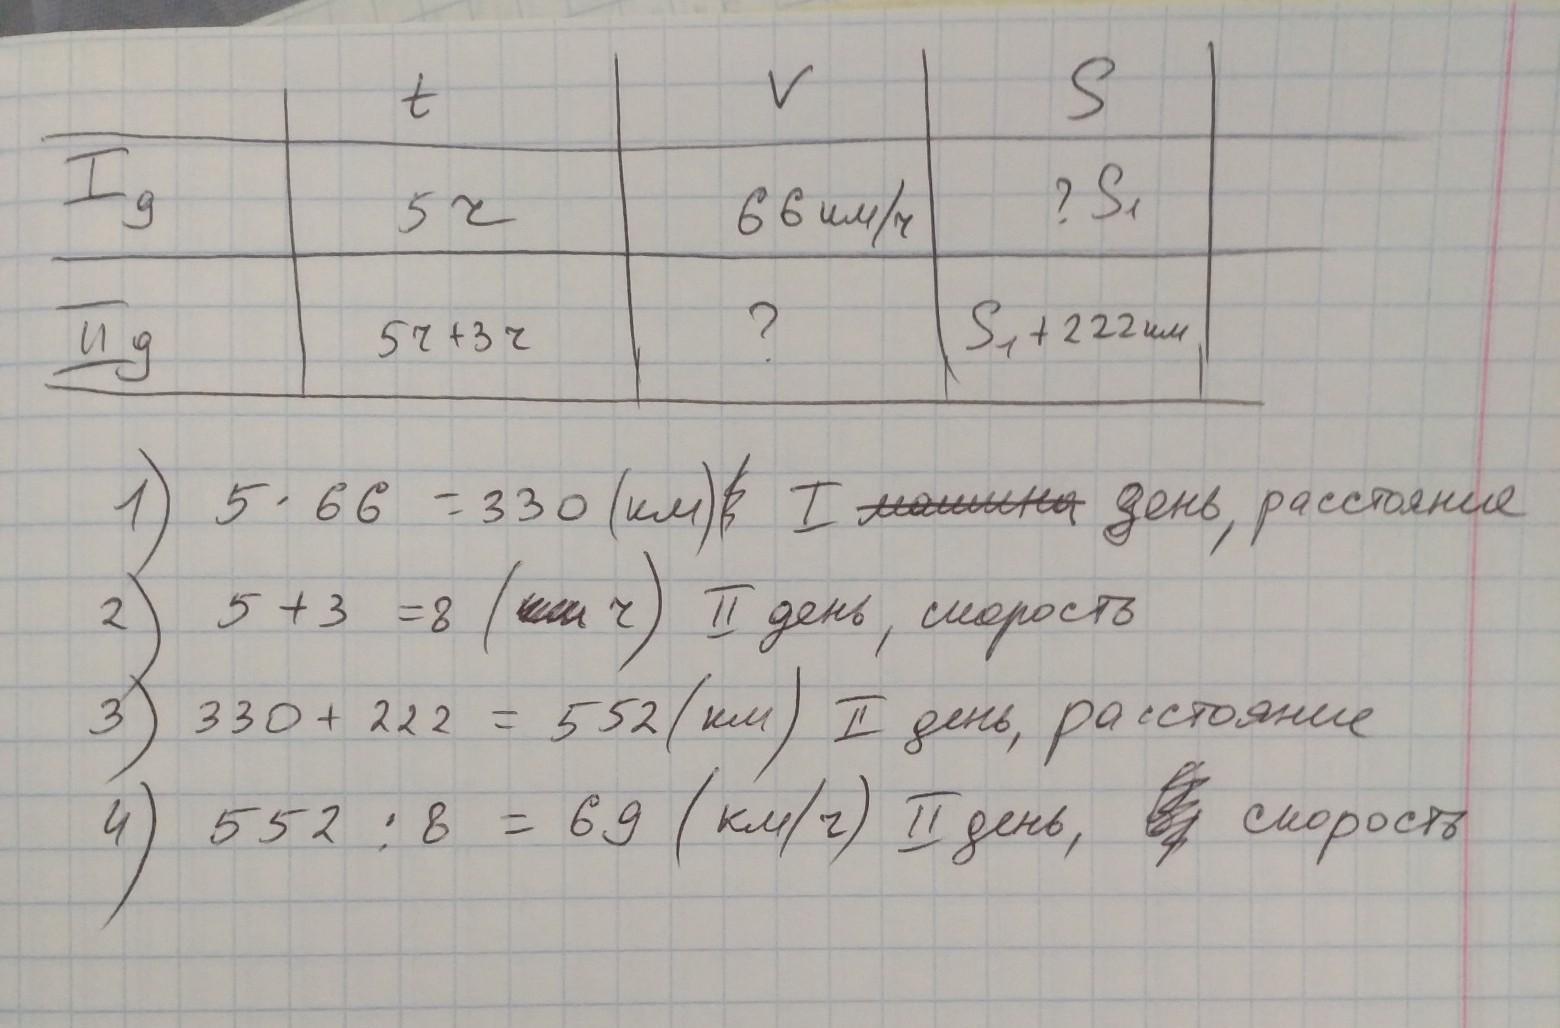 t V S
I д 5 ч 66 км/ч ? S₁
II д 5ч+3ч ? S₁+222км
1) 5·66 =330(км) I машина день, расстояние
2) 5+3 =8 (км ч) II день, скорость
3) 330+222 = 552(км) II день, расстояние
4) 552 : 8 = 69 (км/ч) II день, скорость